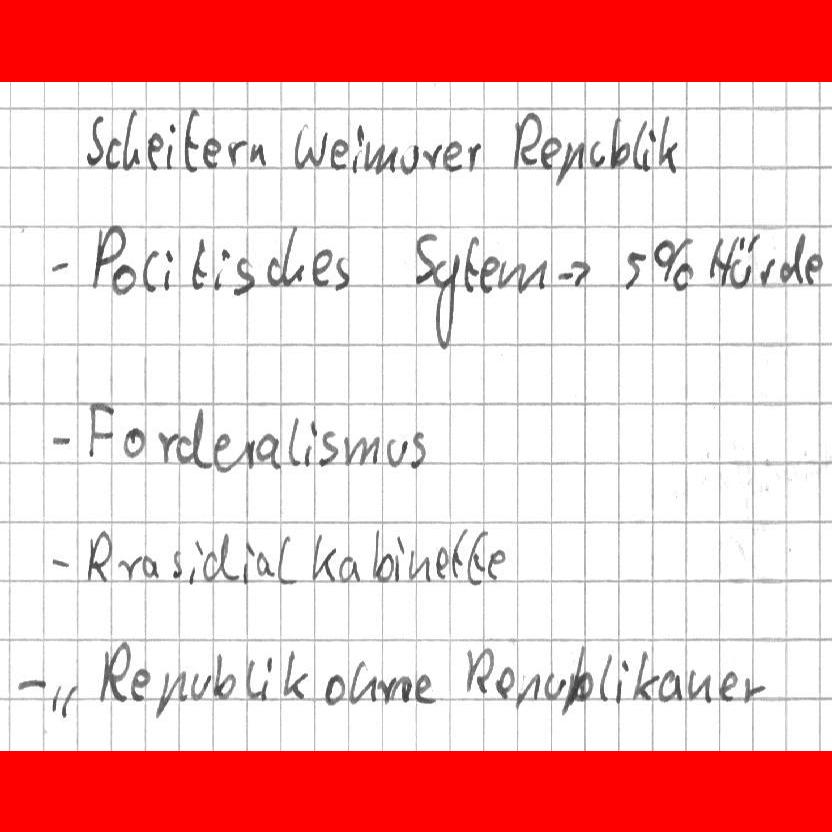 Scheitern Weimarer Republik
- Politisches Sytem -> 5% Hürde
- Forderalismus
- Präsidialkabinette
- „Republik ohne Republikaner